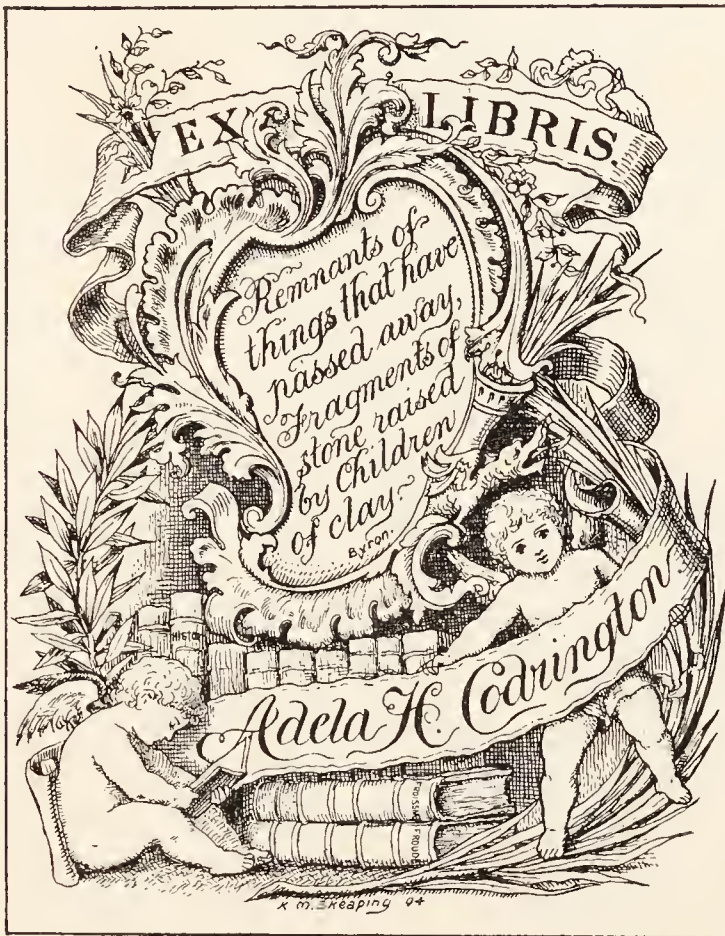 EX LIBRIS.
Remnants of
things that have
passed away,
Fragments of
stone raised
by Children
of clay.
Byron.
HISTOR
Adela H. Codrington
FROISSAR
FROUDE
K M. Skeaping 94